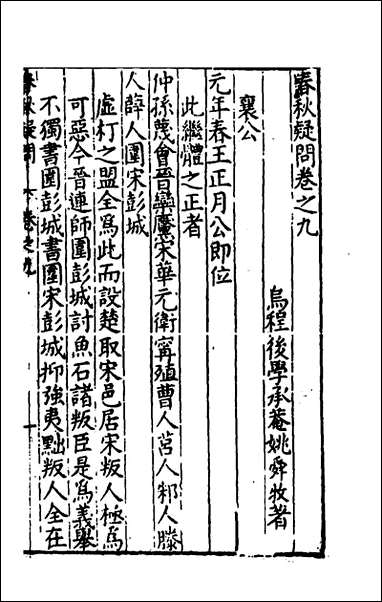 春秋疑問卷之九
烏程後學承菴姚舜牧著
襄公
元年春王正月公即位
此繼體之正者
仲孫蔑會晉欒黶宋華元衛甯殖曹人莒人邾人滕
人薛人圍宋彭城
虛朾之盟全為此而設楚取宋邑居宋叛人極為
可惡今晉連師圍彭城討魚石諸叛臣是為義舉
不獨書圍彭城書圍宋彭城抑強夷黜叛人全在
春秋疑問 卷之九 一